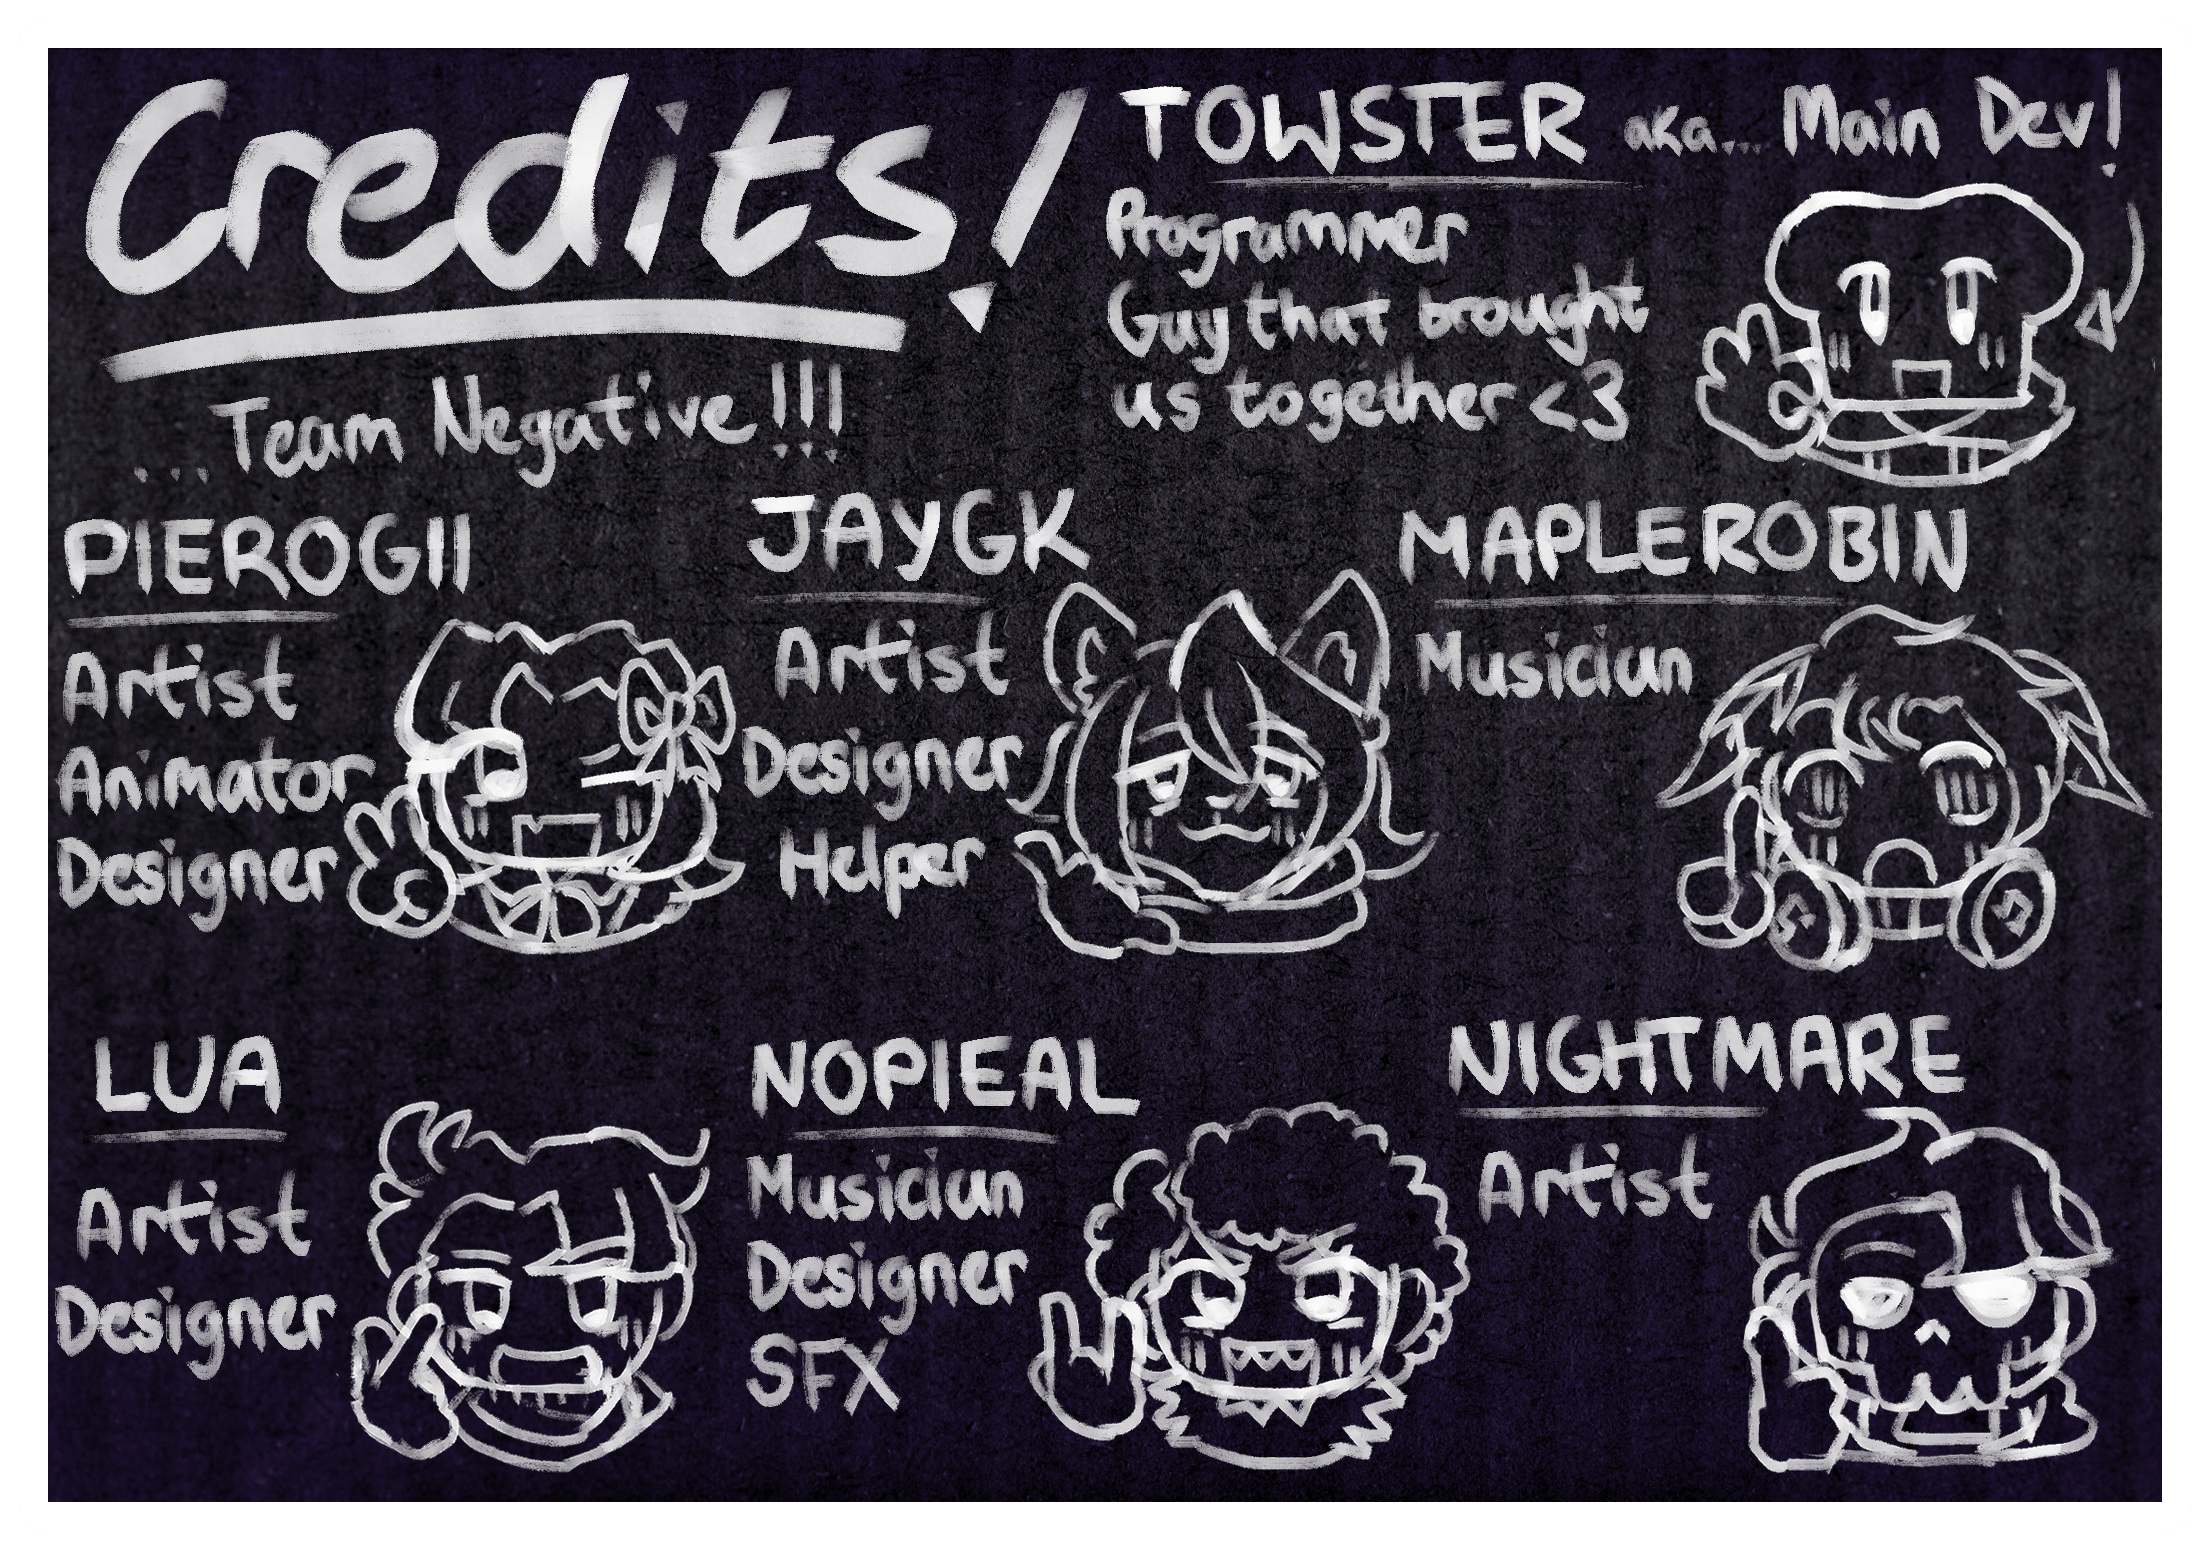 Credits!
...Team Negative!!!
TOWSTER aka... Main Dev!
Programmer
Guy that brought
us together <3
PIEROGII
Artist
Animator
Designer
JAYGK
Artist
Designer
Helper
MAPLEROBIN
Musician
LUA
Artist
Designer
NOPIEAL
Musician
Designer
SFX
NIGHTMARE
Artist